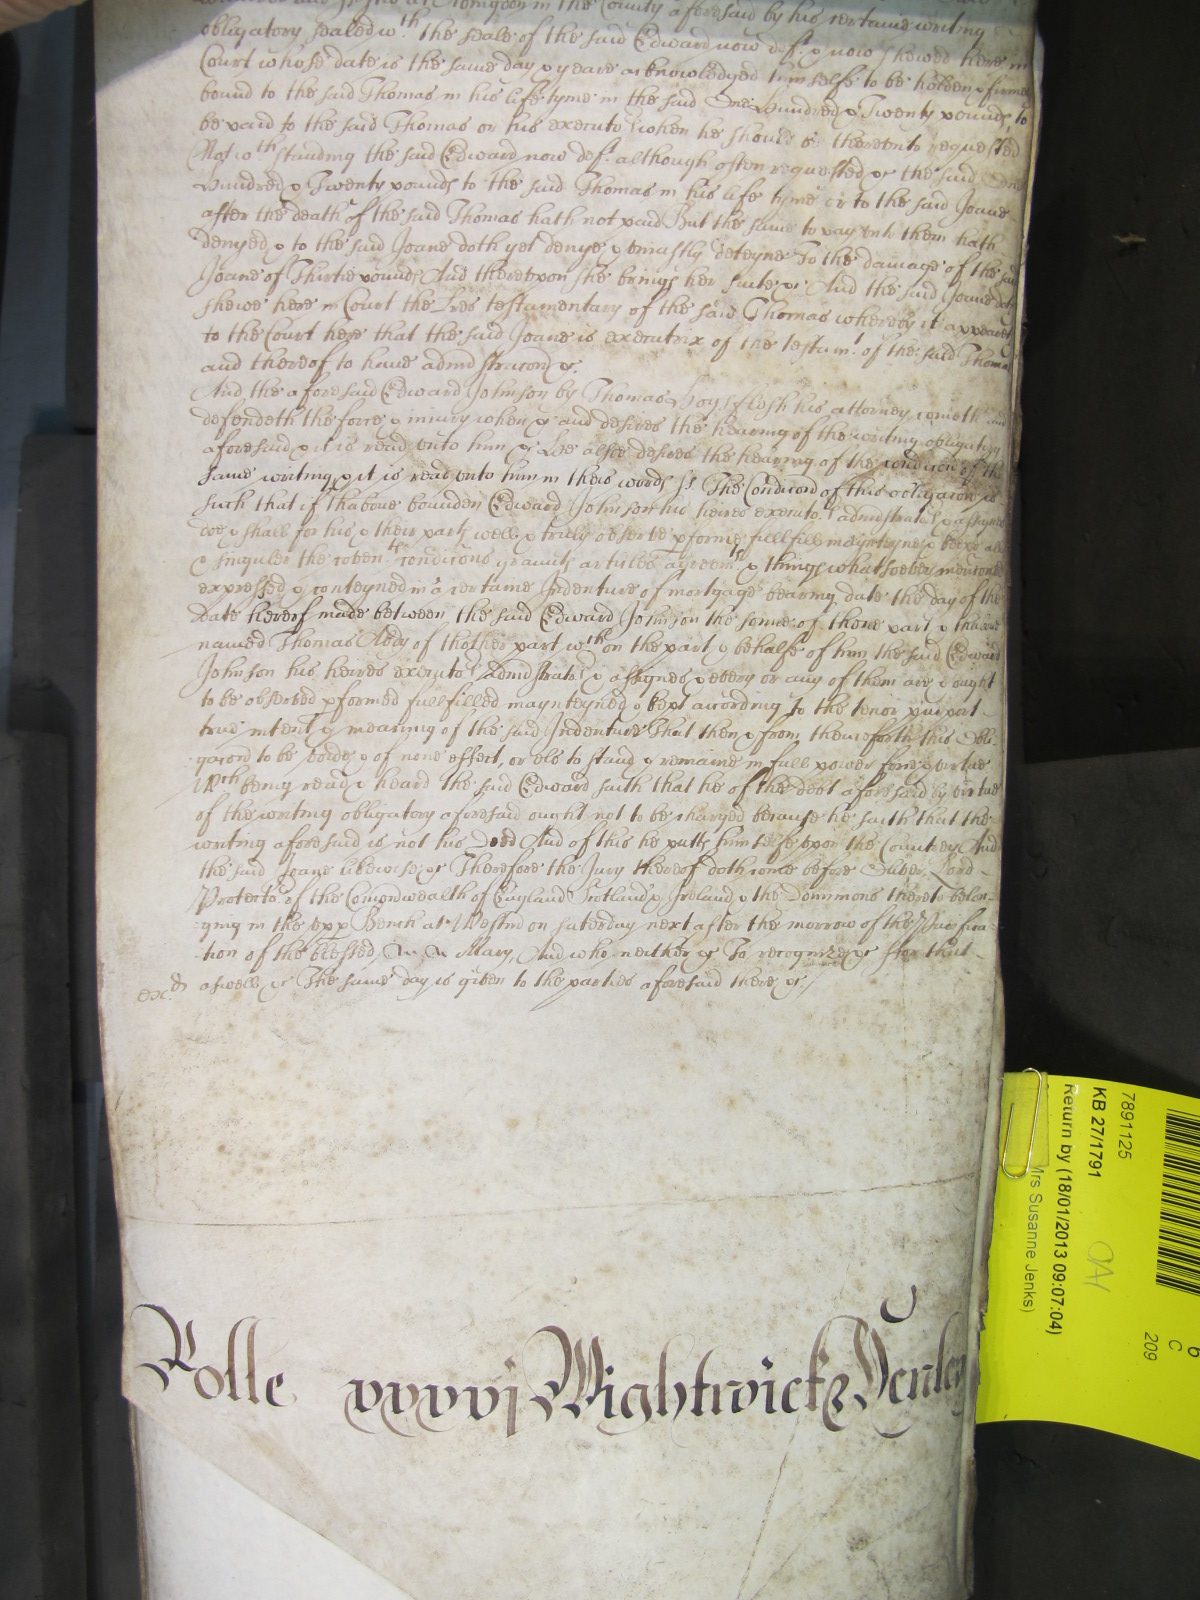 at Abingdon in the County aforesaid by his certaine writing
obligatory sealed wth the seale of the said Edward now def. & now shewed here in
Court whose date is the same day & yeare acknowledged himselfe to be holden & firmely
bound to the said Thomas in his life tyme in the said One Hundred & Twenty pounds to
be paid to the said Thomas or his executors when he should be thereunto requested
Notwthstanding the said Edward now def. although often requested &c the said One
Hundred & Twenty pounds to the said Thomas in his life tyme or to the said Joane
after the death of the said Thomas hath not paid But the same to pay unto them hath
denyed & to the said Joane doth yet denye & uniustly deteyne To the damage of the said
Joane of Thirtie pounds And thereupon she brings her suite &c And the said Joane doth
shewe here in Court the Lres testamentary of the said Thomas whereby it appeares
to the Court here that the said Joane is executrix of the testamt of the said Thomas
and thereof to have admistracon &c.
And the aforesaid Edward Johnson by Thomas Hogsflesh his attorney cometh and
defendeth the force & iniury when &c and desires the hearing of the writing obligatory
aforesaid & it is read unto him &c He alsoe desires the hearing of the condicon of the
same writing & it is read unto him in theis words ss. The Condicon of this obligacon is
such that if thabove bounden Edward Johnson his heires executors admistrators & assignes
doe & shall for his & their parts well & truly observe pforme fullfill maynteyne & keepe all
& singuler the covents condicons graunts articles agreemts & things whatsoever menconed
expressed & conteyned in a certaine Indenture of mortgage bearing date the day of the
date hereof made between the said Edward Johnson the sonne of thone part & thabove
named Thomas Aldy of thother part wch on the part & behalfe of him the said Edward
Johnson his heires executors admistrators & assignes & every or any of them are & ought
to be observed pformed fullfilled maynteyned & kept according to the tenor purport
true intent & meaning of the said Indenture That then & from thenceforth this obli-
gacon to be voide & of none effect, or els to stand & remaine in full power force & virtue
Wch being read & heard the said Edward saith that he of the debt aforesaid by virtue
of the writing obligatory aforesaid ought not to be charged because he saith that the
writing aforesaid is not his Deed And of this he putts himselfe upon the Countrey And
the said Joane likewise &c Therefore the Jury thereof doth come before Oliver Lord
Protector of the Comonwealth of England Scotland & Ireland & the Dominions thereto belon-
ging in the upp Bench at Westmr on saturday next after the morrow of the Purifica-
tion of the blessed Mary, And who neither &c To recognize &c For that
aswell &c The same day is given to the parties aforesaid there &c.
excd
Rolle xxxvj Wightwick & Henley
7891125
KB 27/1791
Return by (18/01/2013 09:07:04)
Mrs Susanne Jenks)
6
C
209